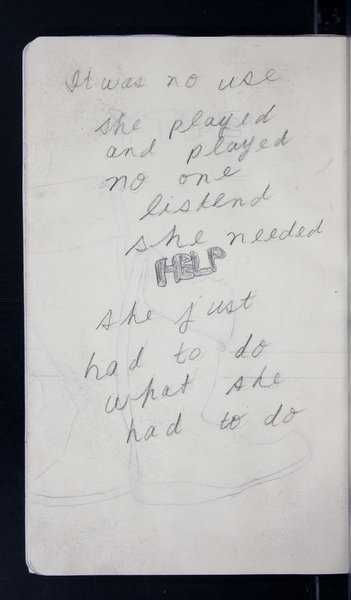 It was no use
she played
and played
no one
listend
she needed
HELP
she just
had to do
what she
had to do